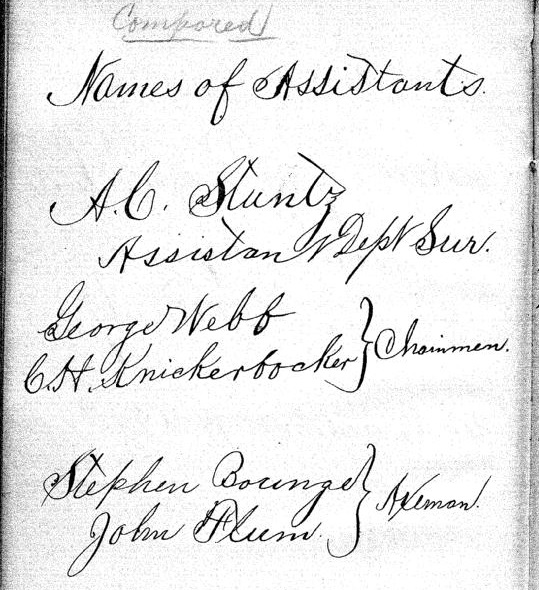 Compared
Names of Assistants.
A.C. Stuntz
Assistant Dept Sur.
George Webb
C.H. Knickerbocker } Chainmen.
Stephen Bounge
John Plum. } Axeman.